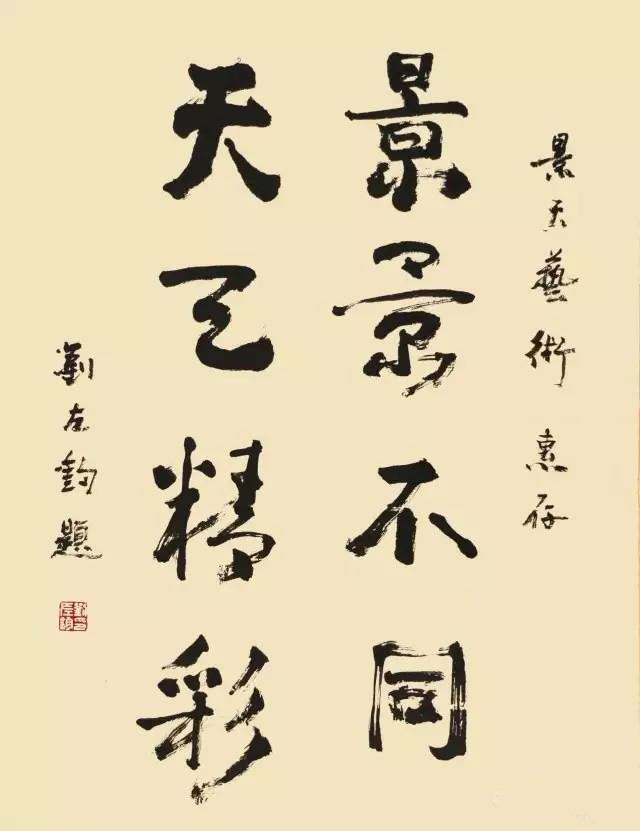 景天藝術惠存
景景不同
天天精彩
劉左鈞題